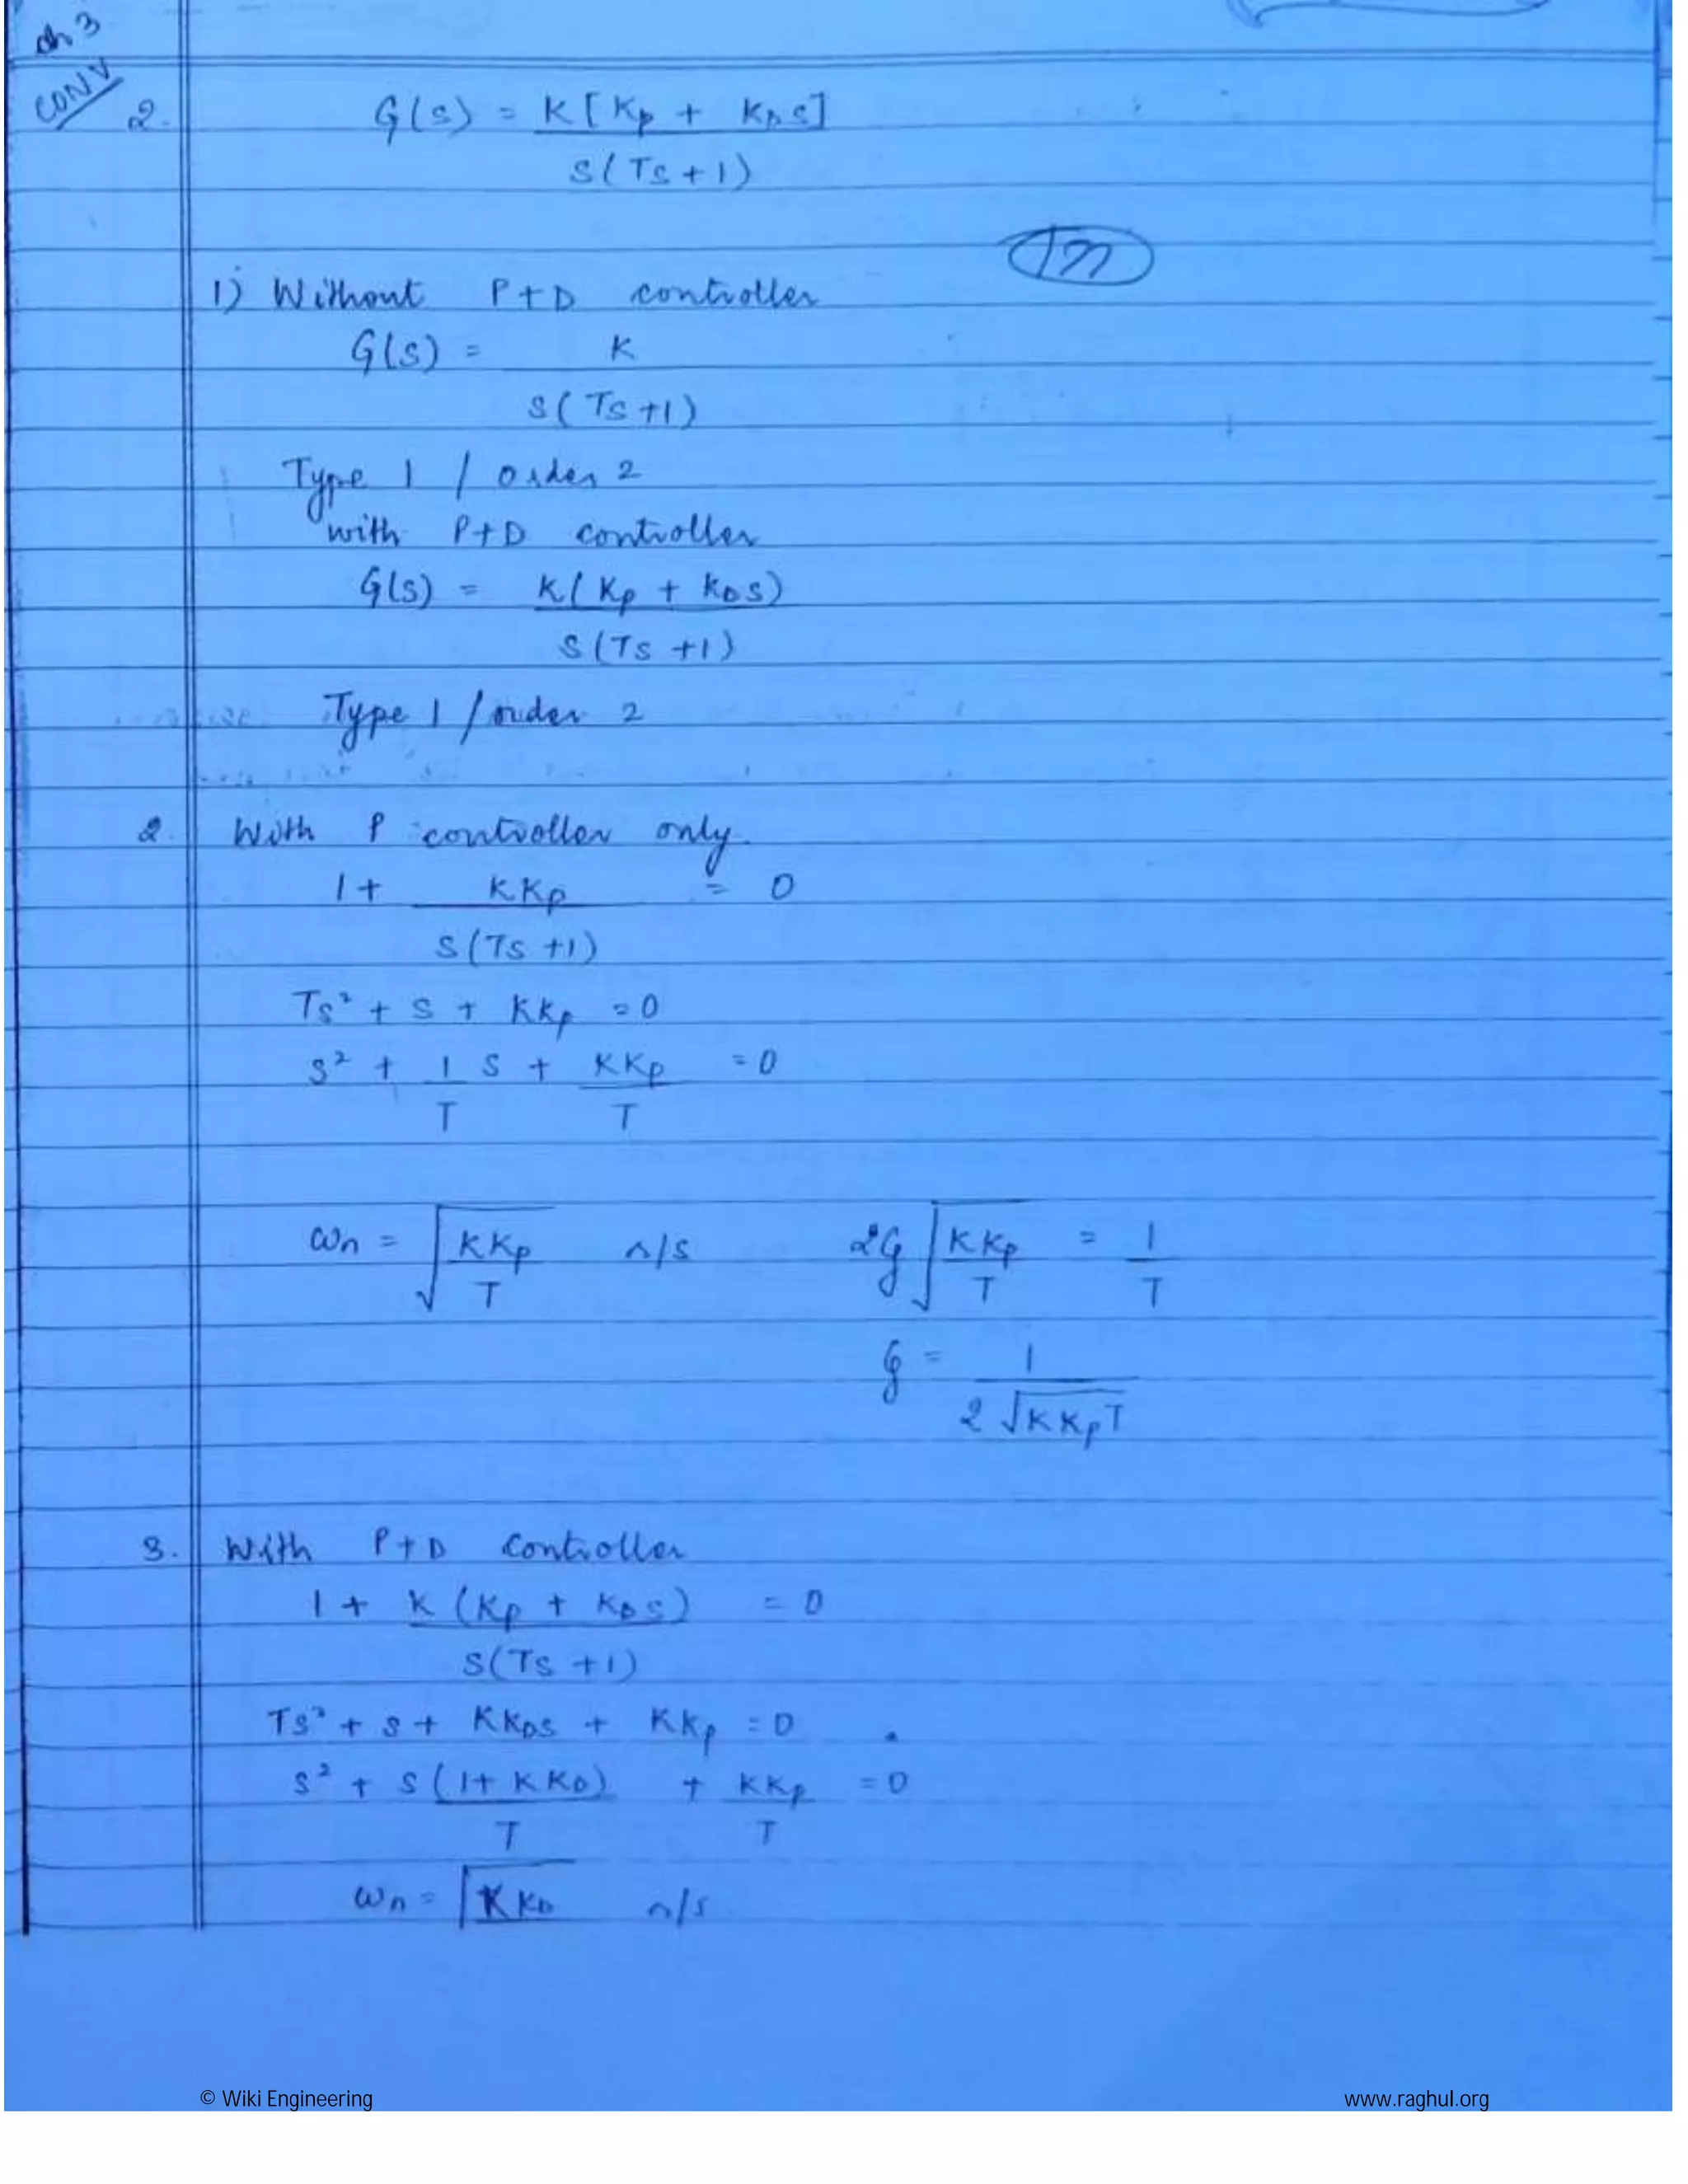 ch 3
CONV
2. G(s) = K[Kp + KDs]
s(Ts+1)
1) Without P+D controller
G(s) = K
s(Ts+1)
Type 1 / order 2
with P+D controller
G(s) = K(Kp + KDs)
s(Ts+1)
Type 1 / order 2
2. With P controller only
1 + KKp = 0
s(Ts+1)
Ts² + s + KKp = 0
s² + 1 s + KKp = 0
T T
ωn = √KKp r/s 2ξ √KKp = 1
T T T
ξ = 1
2√KKpT
3. With P+D controller
1 + K(Kp + KDs) = 0
s(Ts+1)
Ts² + s + KKDs + KKp = 0
s² + s(1+KKD) + KKp = 0
T T
ωn = √KKD r/s
© Wiki Engineering www.raghul.org